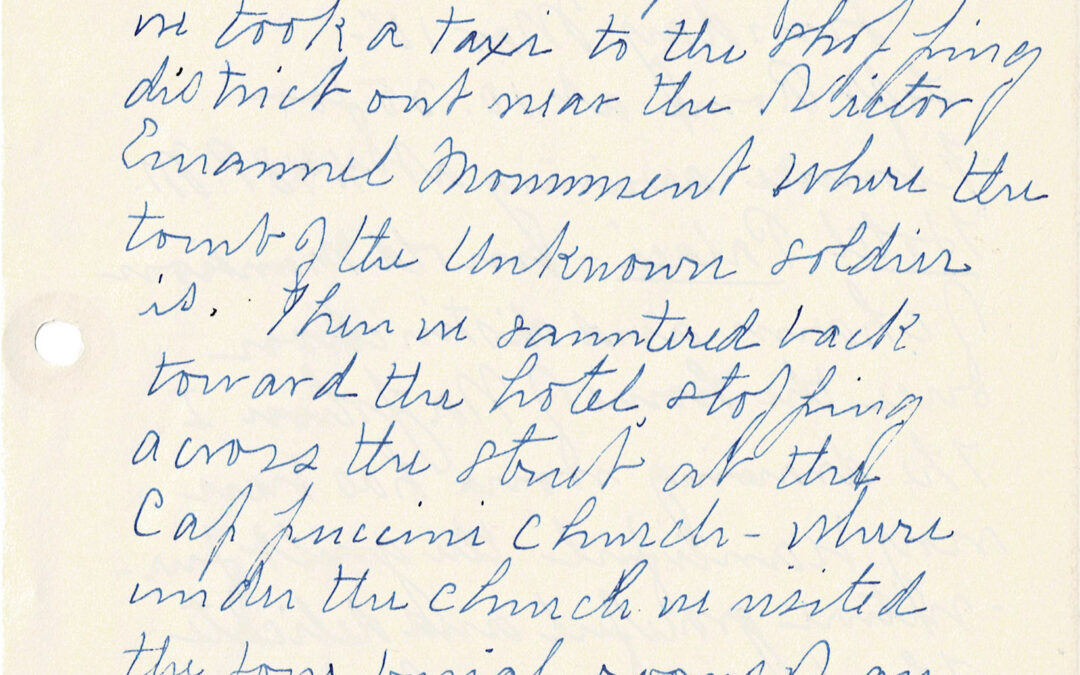 we took a taxi to the shopping
district out near the Victor
Emannel Monnment where the
tomb of the Unknown soldier
is. Then we sauntered back
toward the hotel, stopping
across the street at the
Cappuccini Church - where
under the church we visited
the four burial rooms of an